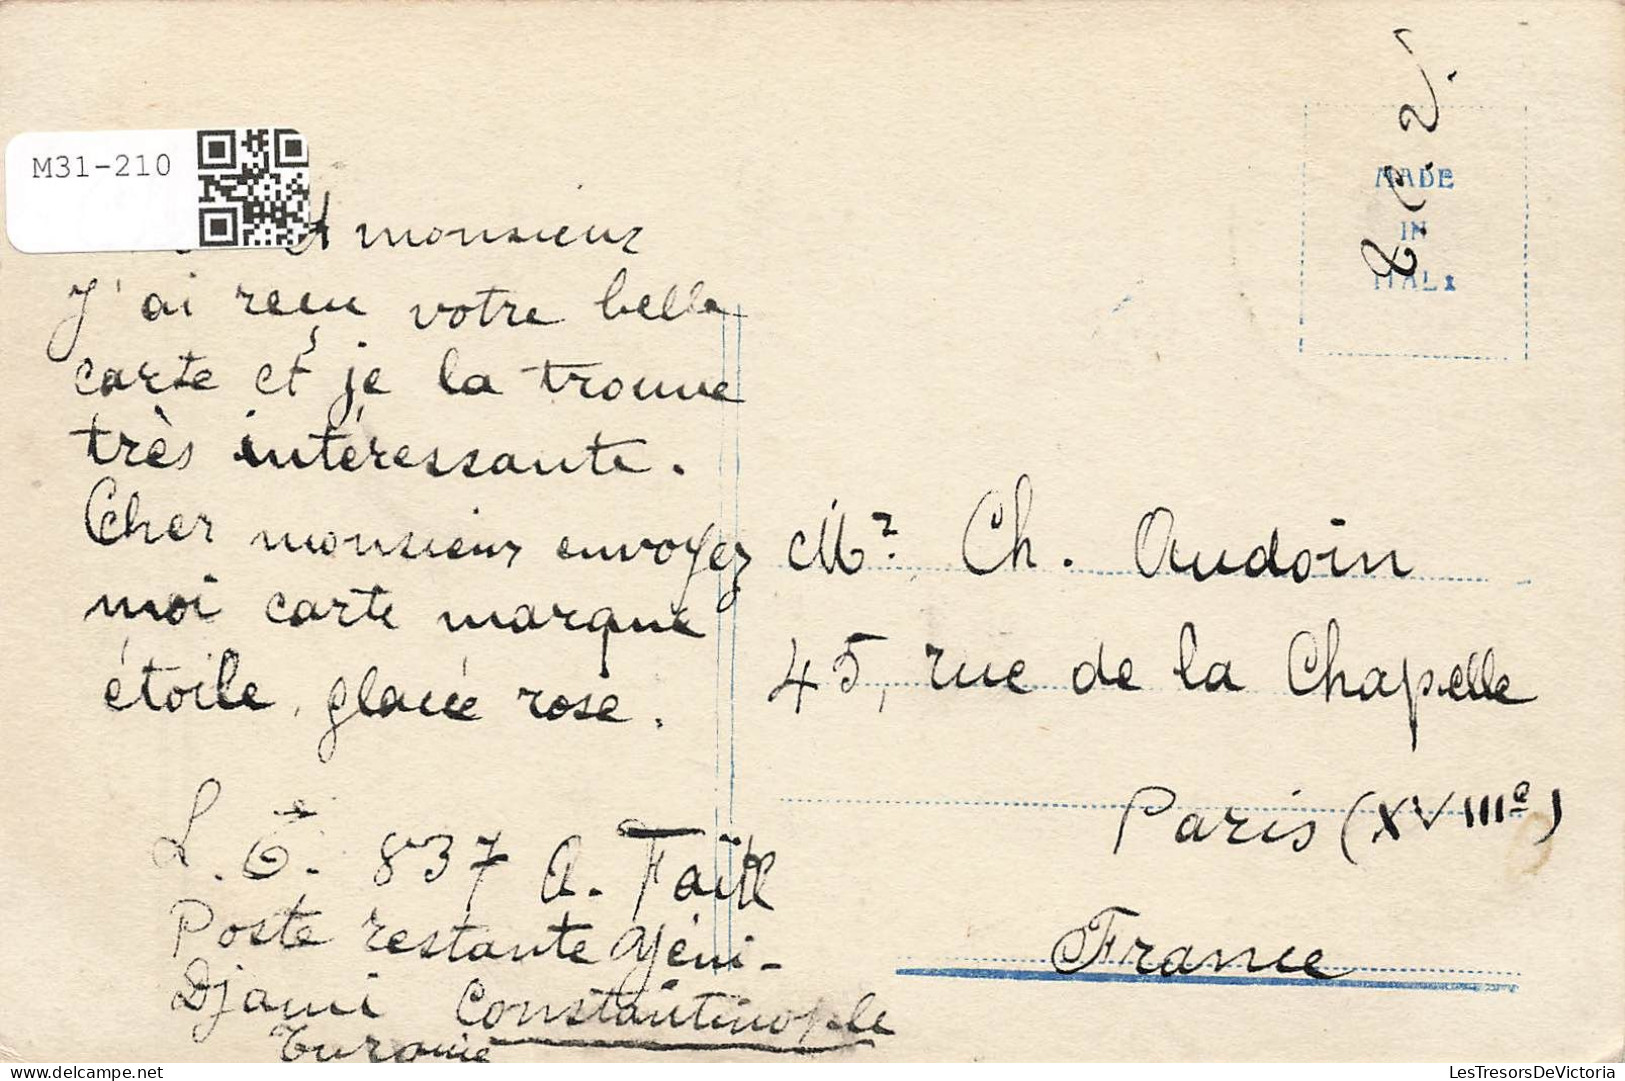 M31-210
monsieur
J'ai reçu votre belle
carte et je la trouve
très intéressante.
Cher monsieur envoyez
moi carte marque
étoile, glacée rose.
L. E. 837 A.
Poste restante Yéni-
Djami Constantinople
Turquie
T. C. V.
MADE
IN
ITALY
Mr. Ch. Audoin
45, rue de la Chapelle
Paris (XVIIIe)
France
LesTresorsDeVictoria